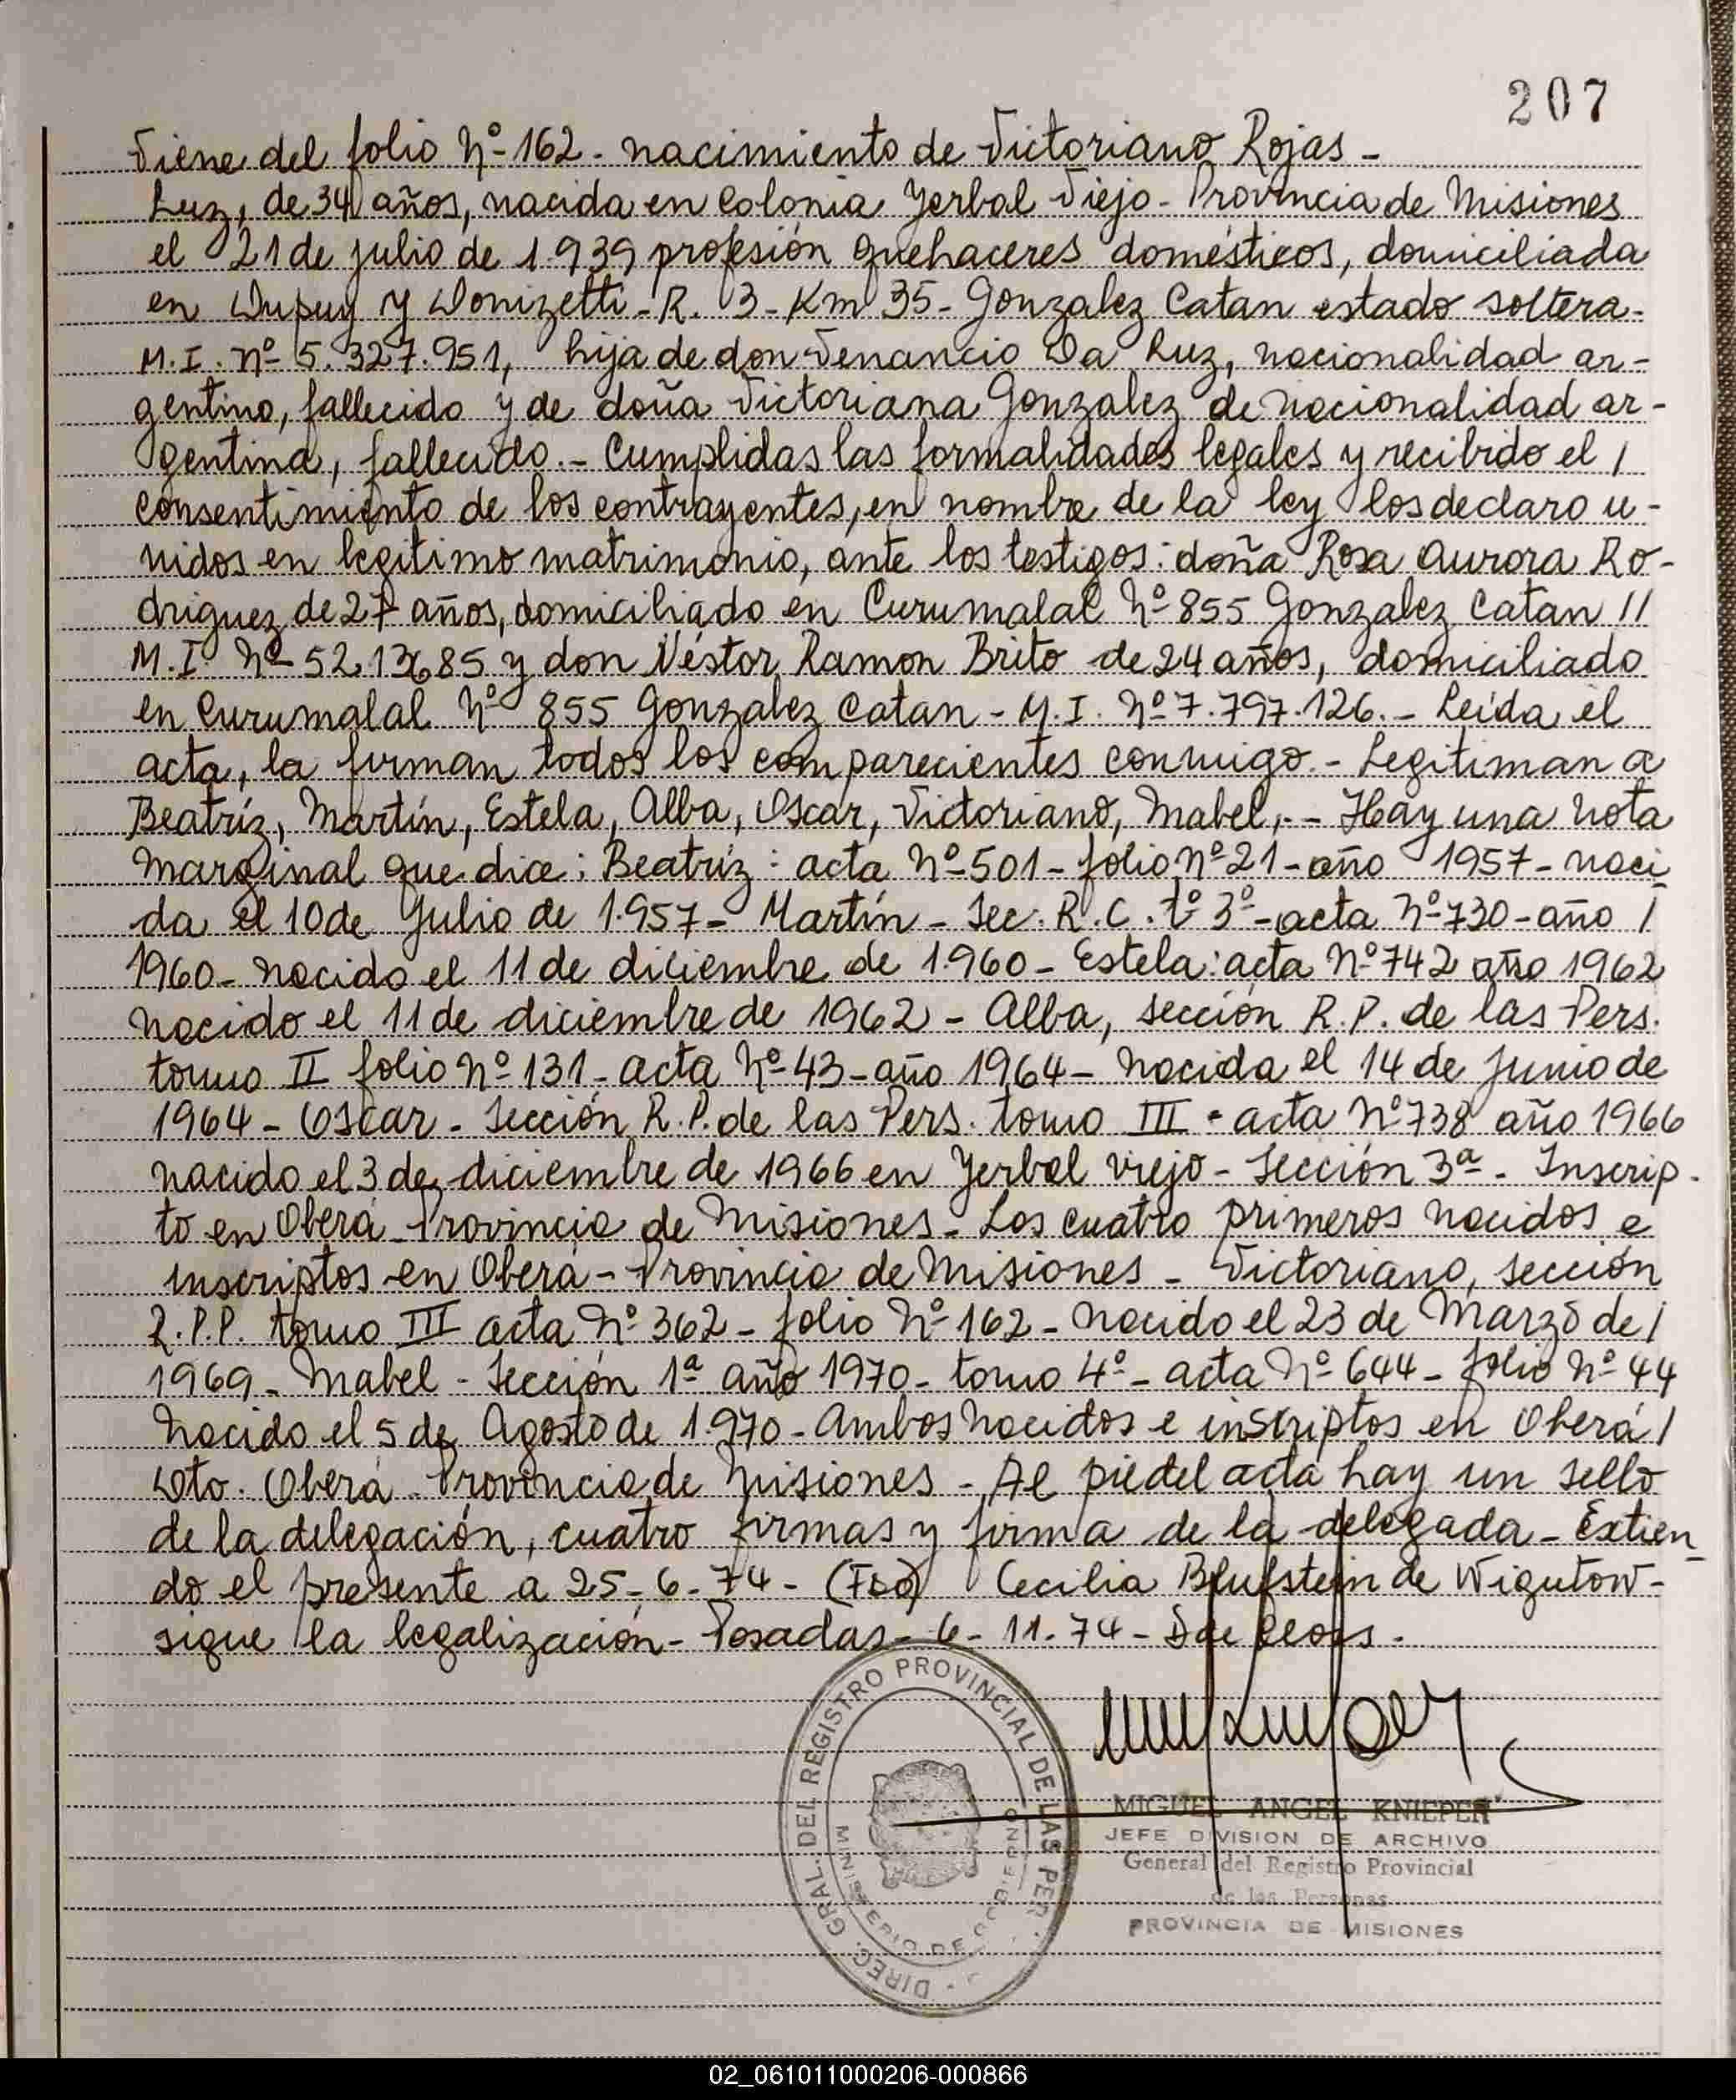 207
Viene del folio Nº 162 - nacimiento de Victoriano Rojas -
Luz, de 34 años, nacida en Colonia Yerbal Viejo - Provincia de Misiones
el 21 de julio de 1.939 profesión quehaceres domésticos, domiciliada
en Dupuy y Donizetti - R. 3 - Km 35 - Gonzalez Catan estado soltera -
M.I. Nº 5.327.951, hija de don Venancio Da Luz, nacionalidad ar-
gentino, fallecido y de doña Victoriana Gonzalez de nacionalidad ar-
gentina, fallecido. - Cumplidas las formalidades legales y recibido el /
consentimiento de los contrayentes, en nombre de la ley los declaro u-
nidos en legitimo matrimonio, ante los testigos: doña Rosa Aurora Ro-
driguez de 27 años, domiciliado en Curumalal Nº 855 Gonzalez Catan //
M.I. Nº y don Néstor Ramon Brito de 24 años, domiciliado
en Curumalal Nº 855 Gonzalez Catan - M.I. Nº 7.797.126. - Leída el
acta, la firman todos los comparecientes conmigo. - Legitiman a
Beatríz, Martín, Estela, Alba, Oscar, Victoriano, Mabel, - - Hay una nota
marginal que dice: Beatriz: acta Nº 501 - folio Nº 21 - año 1957 - naci
da el 10 de Julio de 1.957 - Martín - Sec. R.C. tº 3º - acta Nº 730 - año /
1960 - nacido el 11 de diciembre de 1.960 - Estela: acta Nº 742 año 1962
nacido el 11 de diciembre de 1962 - Alba, sección R.P. de las Pers.
tomo II folio Nº 131 - acta Nº 43 - año 1964 - nacida el 14 de Junio de
1964 - Oscar - Sección R.P. de las Pers. tomo III - acta Nº 738 año 1966
nacido el 3 de diciembre de 1966 en Yerbal viejo - Sección 3ª - Inscrip -
to en Oberá - Provincia de Misiones - Los cuatro primeros nacidos e
inscriptos en Oberá - Provincia de Misiones - Victoriano, sección
R.P.P. tomo III acta Nº 362 - folio Nº 162 - nacido el 23 de Marzo de /
1969 - Mabel - Sección 1ª año 1970 - tomo 4º - acta Nº 644 - folio Nº 44
nacido el 5 de Agosto de 1.970 - Ambos nacidos e inscriptos en Oberá /
Dto. Oberá - Provincia de Misiones - Al pie del acta hay un sello
de la delegación, cuatro firmas y firma de la delegada - Extien_
do el presente a 25-6-74 - (Fdo) Cecilia Blufstein de Wigutow -
sigue la legalización - Posadas - 6-11-74 -
DIREC. GRAL. DEL REGISTRO PROVINCIAL DE LAS PER.
MINISTERIO DE GOBIERNO
MIGUEL ANGEL KNIEPER
JEFE DIVISION DE ARCHIVO
General del Registro Provincial
de las Personas
PROVINCIA DE MISIONES
02_061011000206-000866